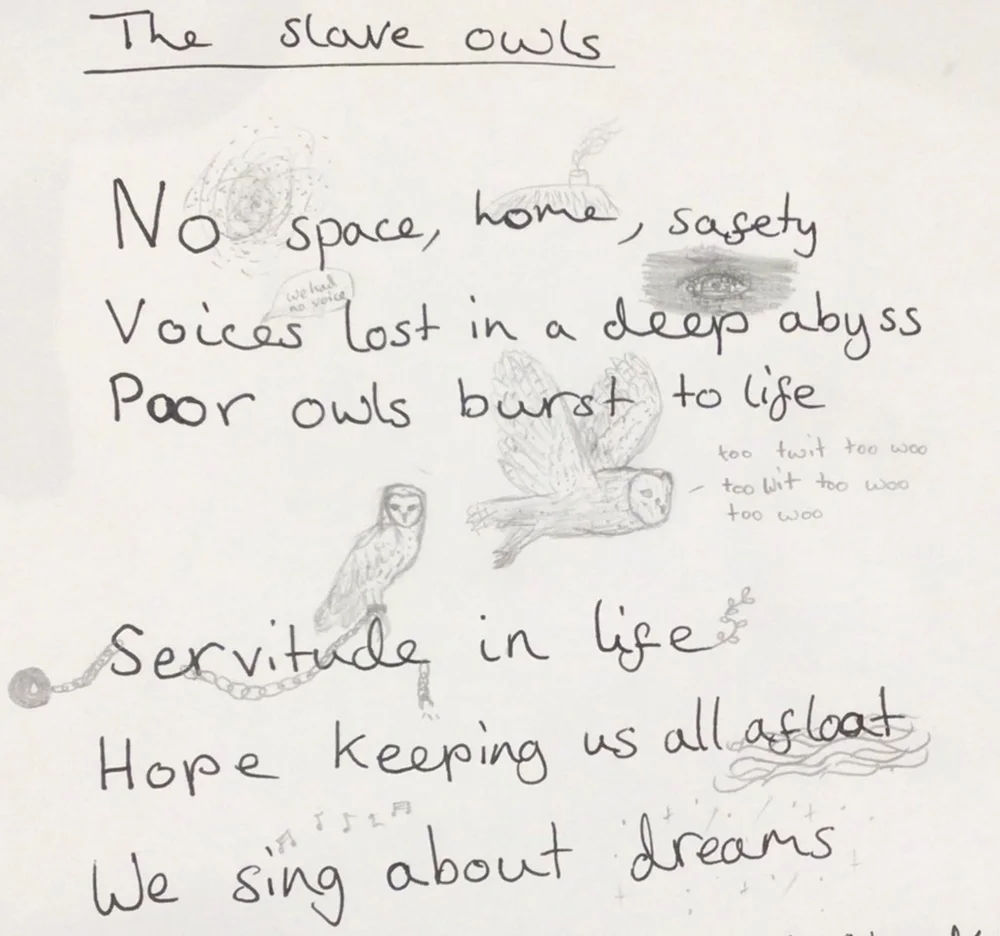 The slave owls
No space, home, safety
we had
no voice
Voices lost in a deep abyss
Poor owls burst to life
too twit too woo
too wit too woo
too woo
Servitude in life
Hope keeping us all afloat
We sing about dreams